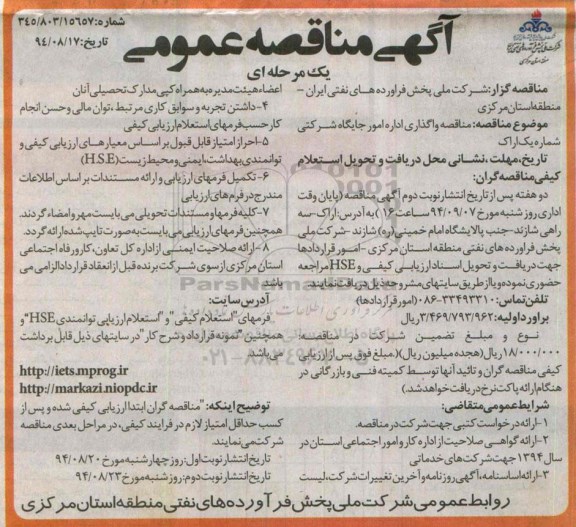 شماره: ۳۴۵/۸۰۳/۱۵۶۵۷
تاریخ: ۹۴/۰۸/۱۷
آگهی مناقصه عمومی
یک مرحله ای
مناقصه گزار: شرکت ملی پخش فرآورده های نفتی ایران –
منطقه استان مرکزی
موضوع مناقصه: مناقصه واگذاری اداره امور جایگاه شرکتی
شماره یک اراک
تاریخ، مهلت، نشانی محل دریافت و تحویل استعلام
کیفی مناقصه گران:
دو هفته پس از تاریخ انتشار نوبت دوم آگهی مناقصه (پایان وقت
اداری روز شنبه مورخ ۹۴/۰۹/۰۷ ساعت ۱۶) به آدرس: اراک – سه
راهی شازند – جنب پالایشگاه امام خمینی (ره) شازند – شرکت ملی
پخش فرآورده های نفتی منطقه استان مرکزی – امور قراردادها
جهت دریافت و تحویل اسناد ارزیابی کیفی و HSE مراجعه
حضوری نموده و یا از طریق سایتهای مشروحه ذیل دریافت نمایند.
تلفن تماس: ۳۳۴۹۳۳۱۰-۰۸۶ (امور قراردادها)
برآورد اولیه: ۳/۴۶۹/۷۹۳/۹۶۲ ریال
نوع و مبلغ تضمین شرکت در مناقصه:
۱۸/۰۰۰/۰۰۰ ریال (هجده میلیون ریال) (مبلغ فوق پس از ارزیابی
کیفی مناقصه گران و تائید آنها توسط کمیته فنی و بازرگانی در
هنگام ارائه پاکت نرخ دریافت خواهد شد.)
شرایط عمومی متقاضی:
۱- ارائه درخواست کتبی جهت شرکت در مناقصه.
۲- ارائه گواهی صلاحیت از اداره کار و امور اجتماعی استان در
سال ۱۳۹۴ جهت شرکت های خدماتی
۳- ارائه اساسنامه، آگهی روزنامه و آخرین تغییرات شرکت، لیست
اعضاء هیئت مدیره به همراه کپی مدارک تحصیلی آنان
۴- داشتن تجربه و سوابق کاری مرتبط، توان مالی و حسن انجام
کار حسب فرمهای استعلام ارزیابی کیفی
۵- احراز امتیاز قابل قبول بر اساس معیارهای ارزیابی کیفی و
توانمندی بهداشت، ایمنی و محیط زیست (H.S.E)
۶- تکمیل فرمهای ارزیابی و ارائه مستندات بر اساس اطلاعات
مندرج در فرم های ارزیابی
۷- کلیه فرمها و مستندات تحویلی می بایست مهر و امضاء گردند.
همچنین فرمهای ارزیابی می بایست به صورت تایپ شده ارائه گردد.
۸- ارائه صلاحیت ایمنی از اداره کل تعاون، کار و رفاه اجتماعی
استان مرکزی از سوی شرکت برنده قبل از انعقاد قرارداد الزامی می
باشد.
آدرس سایت:
فرمهای "استعلام کیفی" و "استعلام ارزیابی توانمندی HSE" و
همچنین "نمونه قرارداد و شرح کار" در سایتهای ذیل قابل برداشت
می باشد.
http://iets.mprog.ir
http://markazi.niopdc.ir
توضیح اینکه: "مناقصه گران ابتدا ارزیابی کیفی شده و پس از
کسب حداقل امتیاز لازم در فرایند کیفی، در مراحل بعدی مناقصه
شرکت می نمایند.
تاریخ انتشار نوبت اول: روز چهارشنبه مورخ ۹۴/۰۸/۲۰
تاریخ انتشار نوبت دوم: روز شنبه مورخ ۹۴/۰۸/۲۳
روابط عمومی شرکت ملی پخش فرآورده های نفتی منطقه استان مرکزی